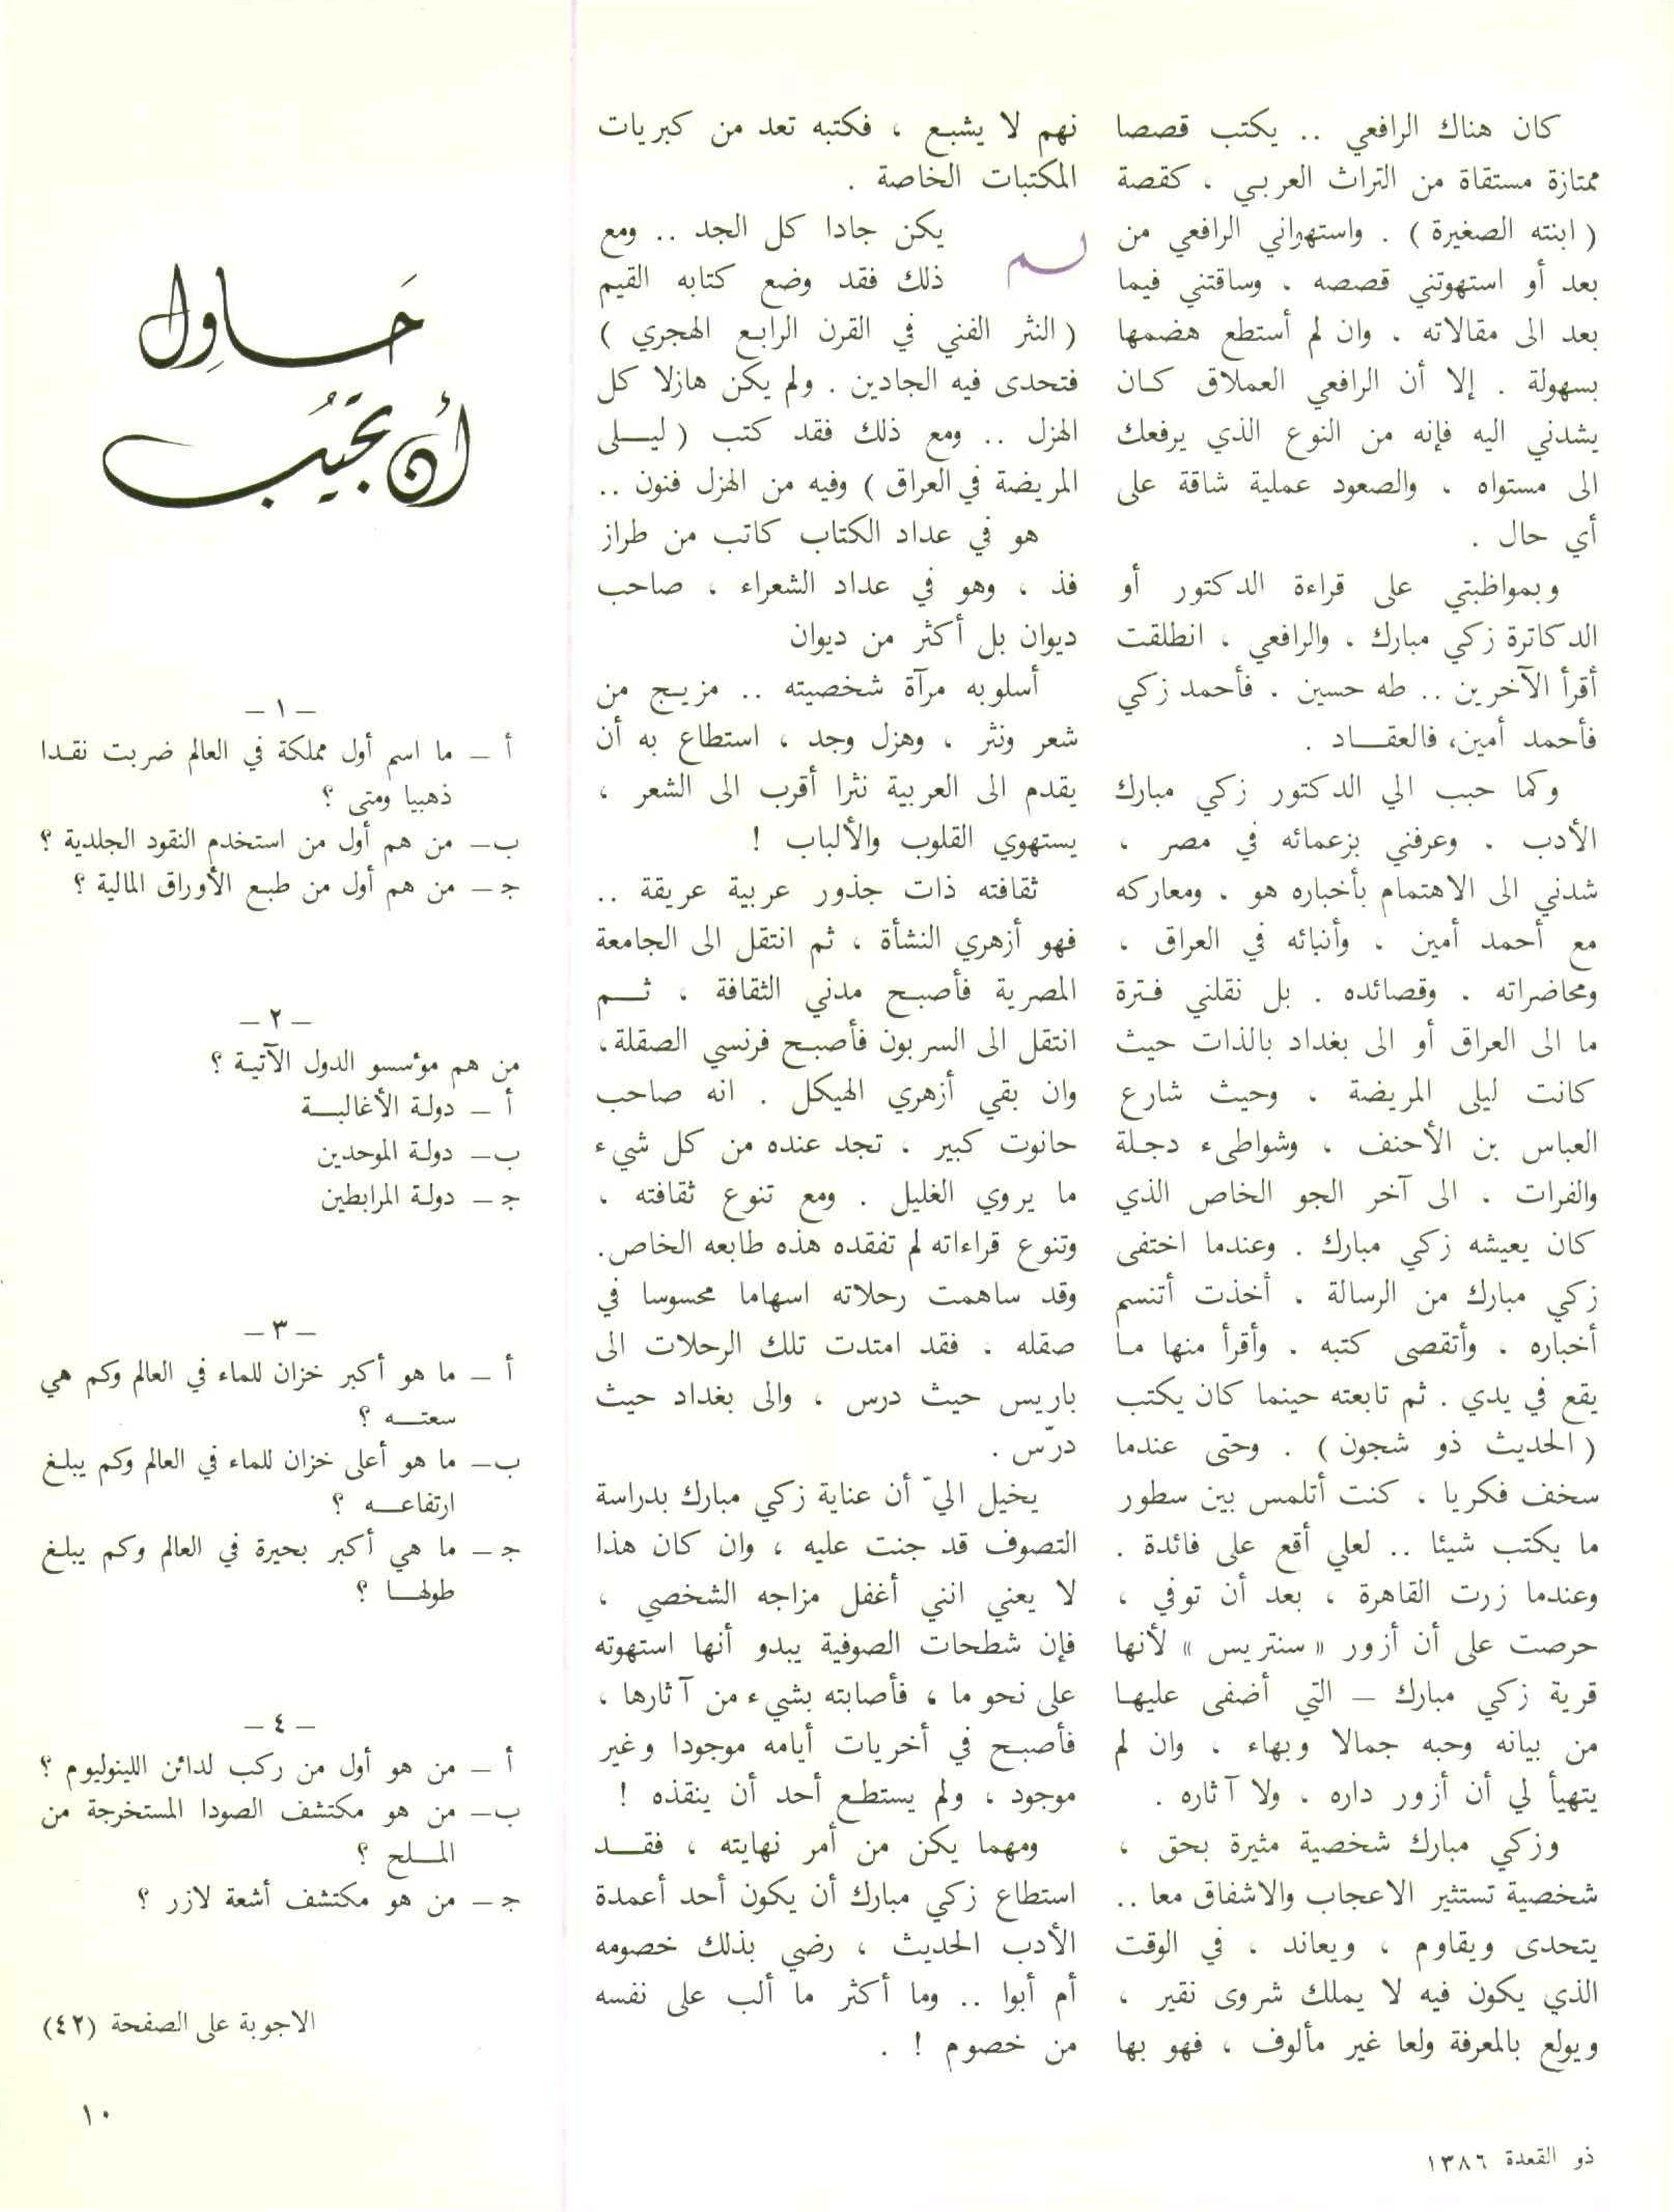 كان هناك الرافعي .. يكتب قصصا
ممتازة مستقاة من التراث العربي ، كقصة
( ابنته الصغيرة ) . واستهواني الرافعي من
بعد أو استهوتني قصصه ، وساقتني فيما
بعد الى مقالاته ، وان لم أستطع هضمها
بسهولة . إلا أن الرافعي العملاق كـان
يشدني اليه فإنه من النوع الذي يرفعك
الى مستواه ، والصعود عملية شاقة على
أي حال .
وبمواظبتي على قراءة الدكتور أو
الدكاترة زكي مبارك ، والرافعي ، انطلقت
أقرأ الآخرين .. طه حسين . فأحمد زكي
فأحمد أمين، فالعقـــاد .
وكما حبب الي الدكتور زكي مبارك
الأدب . وعرفني بزعمائه في مصر ،
شدني الى الاهتمام بأخباره هو ، ومعاركه
مع أحمد أمين . وأنبائه في العراق ،
ومحاضراته ، وقصائده . بل نقلني فـترة
ما الى العراق أو الى بغداد بالذات حيث
كانت ليلى المريضة ، وحيث شارع
العباس بن الأحنف ، وشواطىء دجـلة
والفرات ، الى آخر الجو الخاص الذي
كان يعيشه زكي مبارك . وعندما اختفى
زكي مبارك من الرسالة ، أخذت أتنسم
أخباره ، وأتقصى كتبه ، وأقرأ منها مـا
يقع في يدي . ثم تابعته حينما كان يكتب
( الحديث ذو شجون ) . وحتى عندما
سخف فكريا ، كنت أتلمس بين سطور
ما يكتب شيئا .. لعلي أقع على فائدة .
وعندما زرت القاهرة ، بعد أن توفي ،
حرصت على أن أزور « سنتريس » لأنها
قرية زكي مبارك – التي أضفى عليهـا
من بيانه وحبه جمالا وبهاء ، وان لم
يتهيأ لي أن أزور داره ، ولا آثاره .
وزكي مبارك شخصية مثيرة بحق ،
شخصية تستثير الاعجاب والاشفاق معا ..
يتحدى ويقاوم ، ويعاند ، في الوقت
الذي يكون فيه لا يملك شروى نقير ،
ويولع بالمعرفة ولعا غير مألوف ، فهو بها
نهم لا يشبـع ، فكتبه تعد من كبريات
المكتبات الخاصة .
لم يكن جادا كل الجد .. ومع
ذلك فقد وضع كتابه القيم
( النثر الفني في القرن الرابـع الهجري )
فتحدى فيه الجادين . ولم يكن هازلا كل
الهزل .. ومع ذلك فقد كتب ( ليـــلى
المريضة في العراق ) وفيه من الهزل فنون ..
هو في عداد الكتاب كاتب من طراز
فذ ، وهو في عداد الشعراء ، صاحب
ديوان بل أكثر من ديوان
أسلوبه مرآة شخصيته .. مزيـج من
شعر ونثر ، وهزل وجد ، استطاع به أن
يقدم الى العربية نثرا أقرب الى الشعر ،
يستهوي القلوب والألباب !
ثقافته ذات جذور عربية عريقة ..
فهو أزهري النشأة ، ثم انتقل الى الجامعة
المصرية فأصبـح مدني الثقافة ، ثـــم
انتقل الى السربون فأصبـح فرنسي الصقلة،
وان بقي أزهري الهيكل . انه صاحب
حانوت كبير ، تجد عنده من كل شيء
ما يروي الغليل . ومع تنوع ثقافته ،
وتنوع قراءاته لم تفقده هذه طابعه الخاص.
وقد ساهمت رحلاته اسهاما محسوسا في
صقله . فقد امتدت تلك الرحلات الى
باريس حيث درس ، والى بغداد حيث
درّس .
يخيل اليّ أن عناية زكي مبارك بدراسة
التصوف قد جنت عليه ، وان كان هذا
لا يعني انني أغفل مزاجه الشخصي ،
فإن شطحات الصوفية يبدو أنها استهوته
على نحو ما ، فأصابته بشيء من آثارها ،
فأصبـح في أخريات أيامه موجودا وغير
موجود ، ولم يستطـع أحد أن ينقذه !
ومهما يكن من أمر نهايته ، فقـــد
استطاع زكي مبارك أن يكون أحد أعمدة
الأدب الحديث ، رضي بذلك خصومه
أم أبوا .. وما أكثر ما ألب على نفسه
من خصوم ! .
حَـــاوِل
أن تجيُب
– ١ –
أ – ما اسم أول مملكة في العالم ضربت نقـدا
ذهبيا ومتى ؟
ب– من هم أول من استخدم النقود الجلدية ؟
جـ – من هم أول من طبـع الأوراق المالية ؟
– ٢ –
من هم مؤسسو الدول الآتيـة ؟
أ – دولـة الأغالبـــة
ب– دولـة الموحدين
جـ – دولـة المرابطين
– ٣ –
أ – ما هو أكبر خزان للماء في العالم وكم هي
سعتـــه ؟
ب– ما هو أعلى خزان للماء في العالم وكم يبلـغ
ارتفاعـــه ؟
جـ – ما هي أكبر بحيرة في العالم وكم يبلـغ
طولهـــا ؟
– ٤ –
أ – من هو أول من ركب لدائن اللينوليوم ؟
ب– من هو مكتشف الصودا المستخرجة من
المـــلح ؟
جـ – من هو مكتشف أشعة لازر ؟
الاجوبة على الصفحة (٤٢)
١٠
ذو القعدة ١٣٨٦